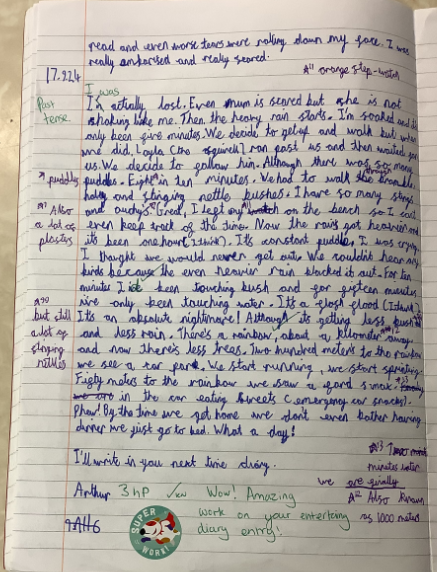 read and even worse tears were rolling down my face. I was
really embarised and really scared.
A11 orange step-
17.2.24
I was
Past
tense
I'm actully lost. Even mum is scared but she is not
shaking like me. Then the heavy rain starts. I'm soaked and it's
only been five minutes. We decide to get up and walk but when
we did, Layla (the squirell) ran past us and then waited for
us. We decide to follow him. Although there was so many
puddles
puddles. Eight in ten minutes. We had to walk through
holly and stinging nettle bushes. I have so many stings
and ouchys. Great, I left my watch on the bench so I can't
Also
a lot of
plasters
even keep track of the time. Now the rain's got heavier and
it's been one hour (I think). It's constant puddle. I was crying.
I thought we would never get out. We couldn't hear any
birds because the even heavier rain blocked it out. For ten
minutes I'd been touching bush and for fifteen minutes
we've only been touching water. It's a flash flood (I think).
It's an absolute nightmare! Although it's getting less bush
but still
a lot of
stinging
nettles
and less rain. There's a rainbow, about a kilometer away
and now there's less trees. Two hundred meters to the rainbow
we see a car park. We start running, we start sprinting.
Fifty meters to the rainbow we saw a
in the car eating sweets (emergency car snacks).
Phew! By the time we get home we don't even bother having
dinner we just go to bed. What a day!
minutes later
I'll write in you next time diary.
we are finally
Arthur 3HP Wow! Amazing
A12 Also known
work on your entertaining as 1000 meters
diary entry!
SUPER
WORK!